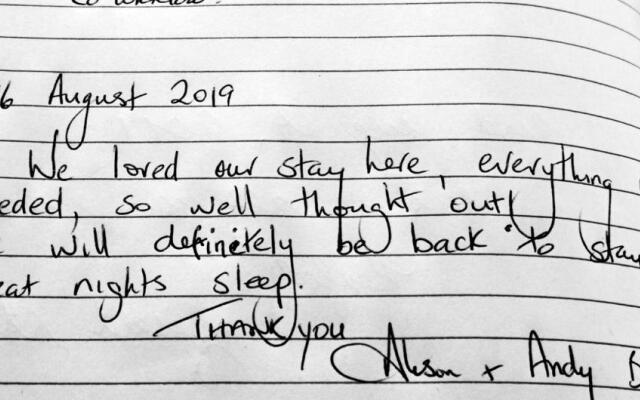 6 August 2019
We loved our stay here, everything
eded, so well thought out!
will definitely be back to stay
eat nights sleep.
THANK YOU
Alison + Andy B